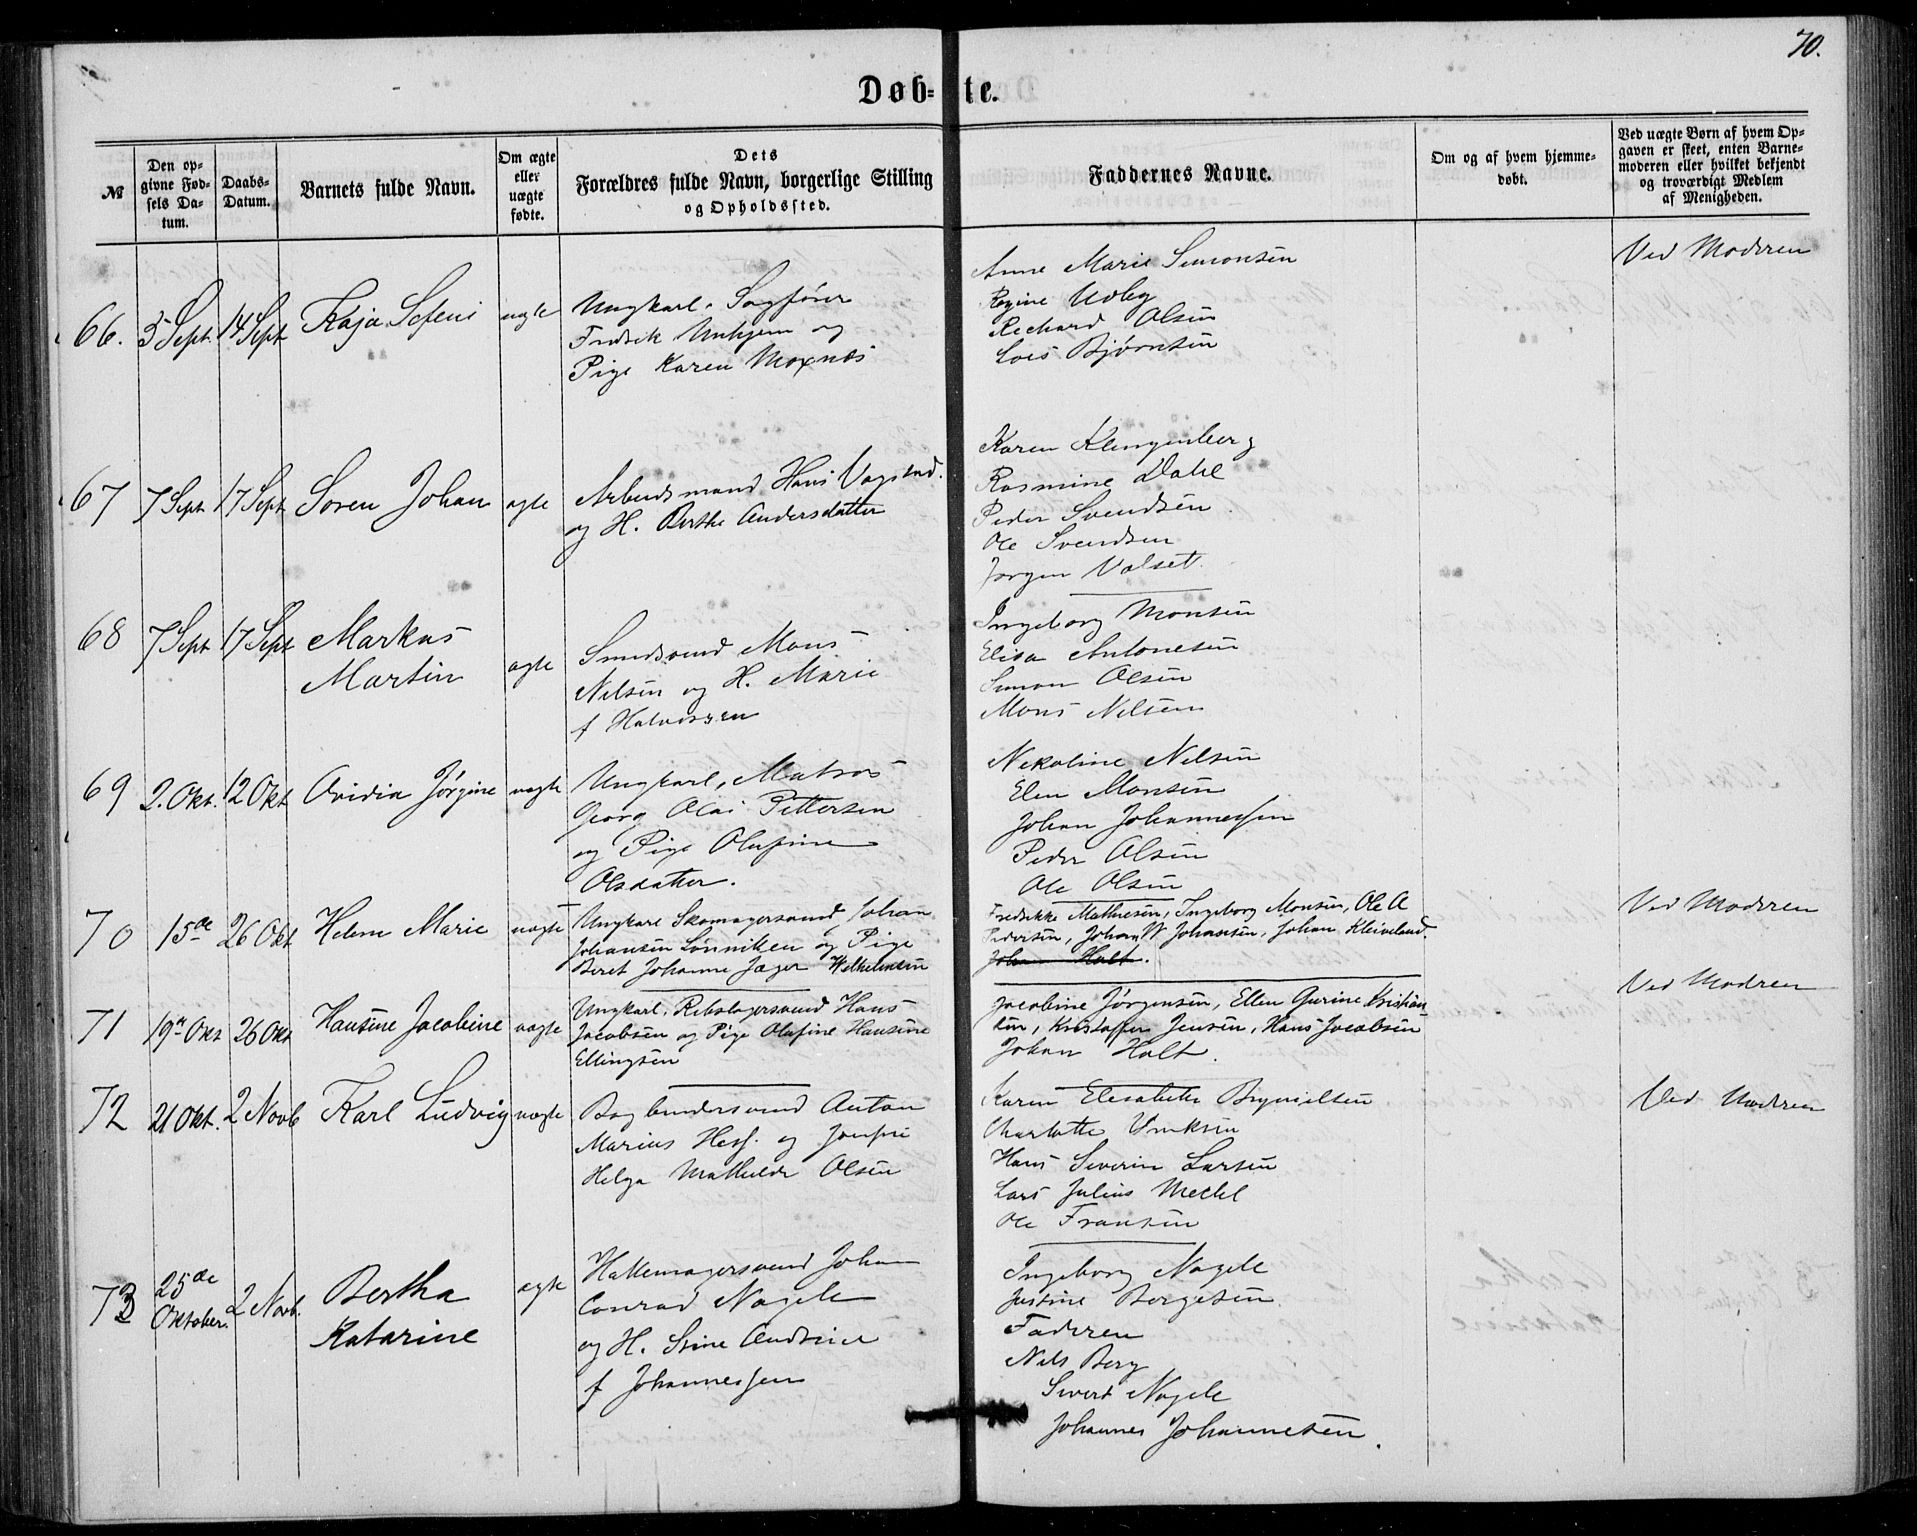 70.
Døb=te.
№
Den op=
givne Fød=
sels Da=
tum.
Daabs=
Datum.
Barnets fulde Navn.
Om ægte
eller
uægte
fødte.
Dets
Forældres fulde Navn, borgerlige Stilling
og Opholdssted.
Faddernes Navne.
Om og af hvem hjemme=
døbt.
Ved uægte Børn af hvem Op=
gaven er skeet, enten Barne=
moderen eller hvilket bekjendt
og troværdigt Medlem
af Menigheden.
66. 5 Sept. 14 Sept Kaja uægte
Ungkarl. Sagfører
Fredrik Unhjem og
Pige Karen Moxnæs
Anne Marie Simonsen
Regine Udby
Richard Olsen
Lois Bjørnsen
Ved Moderen
67 7 Sept 17 Sept Soren Johan ægte
Arbeidsmand Hans Vagstad.
og H. Berthe Andersdatter
Karen Klengenberg
Rasmine Dahl
Peder Svendsen
Ole Svendsen
Jørgen Valset.
68 7 Sept 17 Sept Markus
Martin ægte
Smedsvend Mons
Nelsen og H. Marie
f Halvorsen
Ingeborg Monsen
Elisa Antonesen
Simon Olsen
Mons Nelsen
69 2. Okt. 12 Okt Ovidia Jørgine uægte
Ungkarl, Matros
Georg Olai Pettersen
og Pige Olufine
Olsdatter.
Nekoline Nelsen
Elen Monsen
Johan Johannessen
Peder Olsen
Ole Olsen
70 15de 26 Okt Helene Marie uægte
Ungkarl Skomagersvend Johan
Johansen Lønniken og Pige
Beret Johanne Jæger Wilhelmsen
Fredrikke Mathiesen, Ingeborg Monsen, Ole A
Pedersen, Johan W Johansen, Johan Kleiveland.
Johan Holt.
Ved Moderen
71 19n Okt 26 Okt Hansine Jacobine uægte
Ungkarl. Rebslagersvend Hans
Jacobsen og Pige Olufine Hansine
Ellingsen
Jacobine Jørgensen, Ellen Gurine Kristian-
sen, Kristoffer Jensen, Hans Jacobsen
Johan Holt.
Ved Moderen
72 21 Okt. 2 Novb Karl Ludvig uægte
Bogbindersvend Anton
Marius Hess. og Jomfru
Helga Mathilde Olsen
Karen Elesabeth Brynielsen
Charlotte
Hans Severin Larsen
Lars Julius Mechel
Ole Fransen
Ved Moderen
73 25de
Oktober. 2 Novb. Bertha
Katarine ægte
Hattemagersvend Johan
Conrad Nagele
og H. Stine Andrine
f Johannessen
Ingeborg Nagele
Justine Borgesen
Faderen
Nils Berg
Sivert Nagele
Johannes Johannesen.